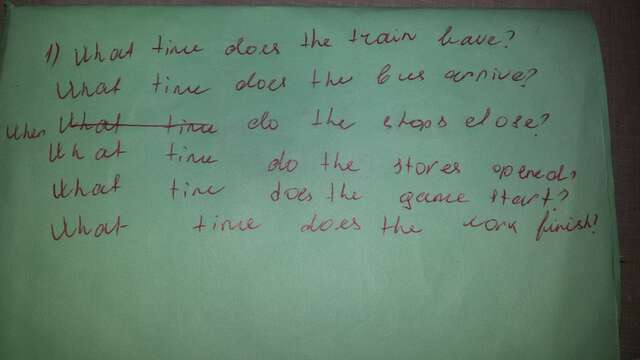 1) What time does the train leave?
What time does the bus arrive?
When What time do the shops close?
What time do the stores opened?
What time does the game start?
What time does the work finish?